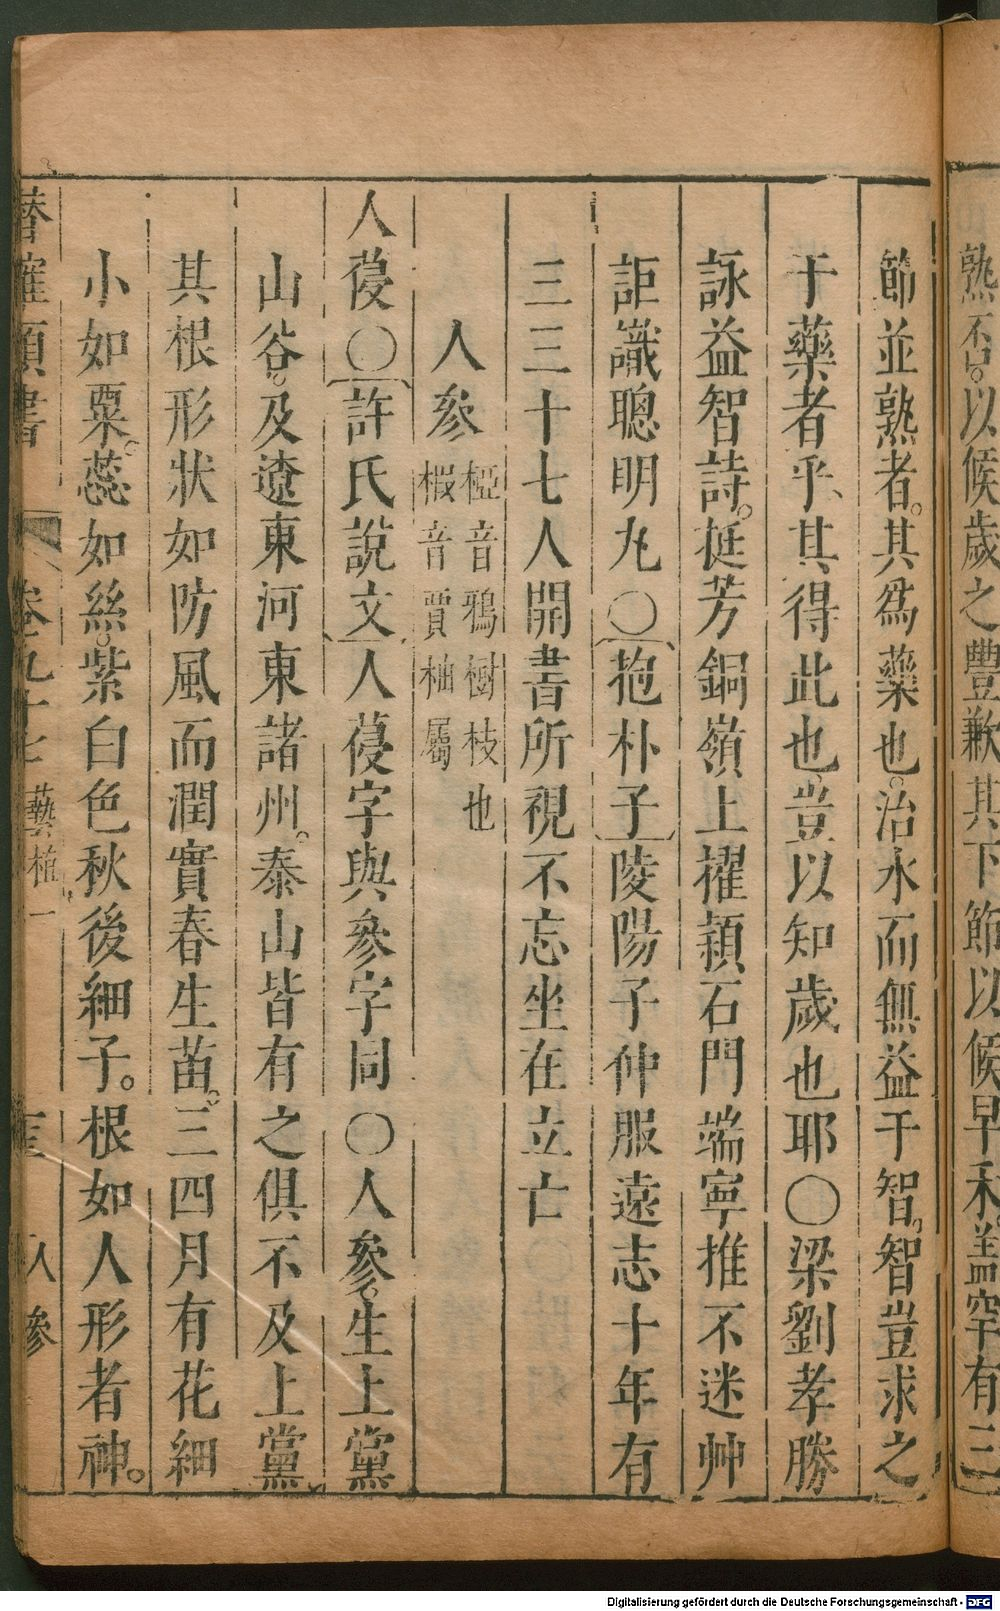 熟否。以候歲之豐歉其下節以候早禾。蓋罕有三
節並熟者。其爲藥也。治水而無益于智。智豈求之
于藥者乎、其得此也。豈以知歲也耶○梁劉孝勝
詠益智詩。挺芳銅嶺上擢穎石門端寧推不迷艸
詎識聰明丸○抱朴子陵陽子仲服遠志十年有
三二十七人開書所視不忘坐在立亡
人參
椏音鴉樹枝也
椵音賈柚屬
人葠○許氏說文人葠字與參字同○人參。生上黨
山谷。及遼東河東諸州。泰山皆有之俱不及上黨
其根形狀如防風而潤實春生苗。三四月有花細
小如粟。蕊如絲。紫白色秋後細子。根如人形者神。
類書
卷九十七
藝植一
人參
Digitalisierung gefördert durch die Deutsche Forschungsgemeinschaft - DFG